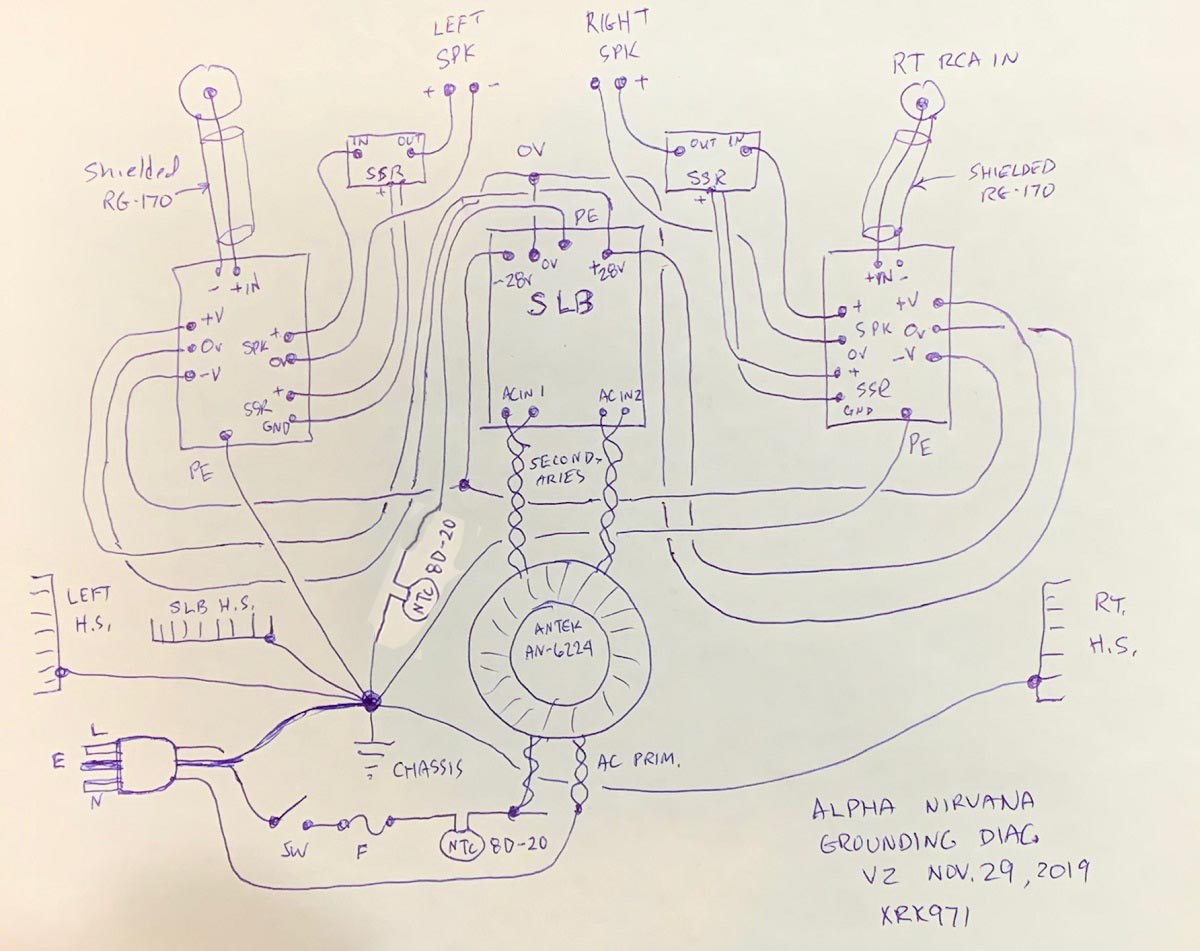 LEFT
SPK
+ -
RIGHT
SPK
+
RT RCA IN
Shielded
RG-170
IN OUT
SSR
+
0V
OUT IN
SSR
+
SHIELDED
RG-170
PE
-28V 0V +28V
SLB
AC IN 1 AC IN 2
- +IN
+V
0V
-V
SPK +
0V
+
SSR
GND
PE
+IN -
+ +V
SPK 0V
0V -V
+
SSR
GND
PE
SECOND-
ARIES
NTC 8D-20
ANTEK
AN-6224
LEFT
H.S.
SLB H.S.
RT.
H.S.
L
E
N
CHASSIS
AC PRIM.
SW F NTC 8D-20
ALPHA NIRVANA
GROUNDING DIAG.
V2 NOV. 29, 2019
XRK971